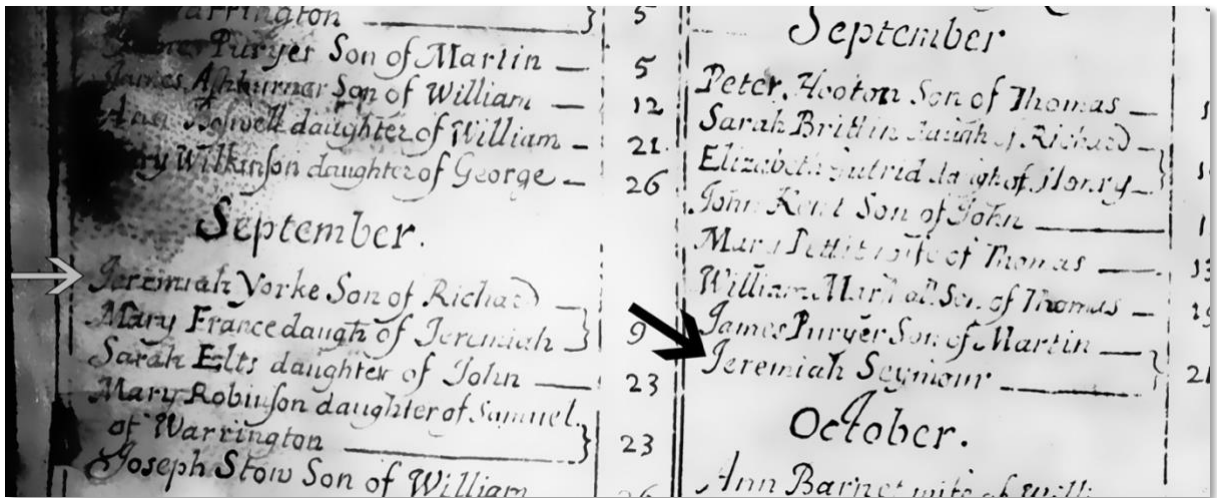 of Warrington 5
James Puryer Son of Martin — 5
James Ashburner Son of William — 12
Ann daughter of William — 21.
Mary Wilkinson daughter of George — 26
September.
Jeremiah Yorke Son of Richard —
Mary France daugh of Jeremiah 9
Sarah Elts daughter of John — 23
Mary Robinson daughter of Samuel
of Warrington 23
Joseph Stow Son of William
September
Peter Hooton Son of Thomas —
Sarah Brittin daugh of Richard —
Elizabeth daugh of Henry —
John Kent Son of John
Mary Pettit wife of Thomas — 13
William Son of Thomas —
James Puryer Son of Martin —
Jeremiah Seymour
October.
Ann Barnet wife of